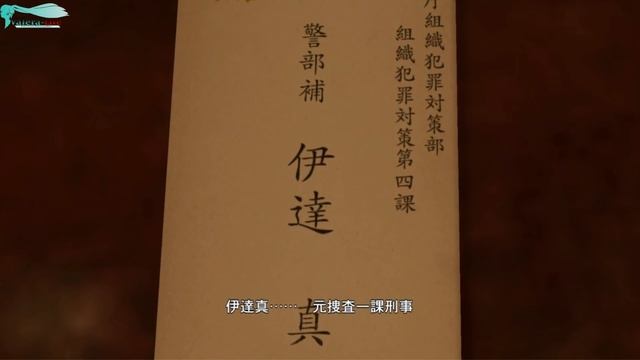 庁組織犯罪対策部
組織犯罪対策第四課
警部補
伊達 真
伊達真…… 元捜査一課刑事